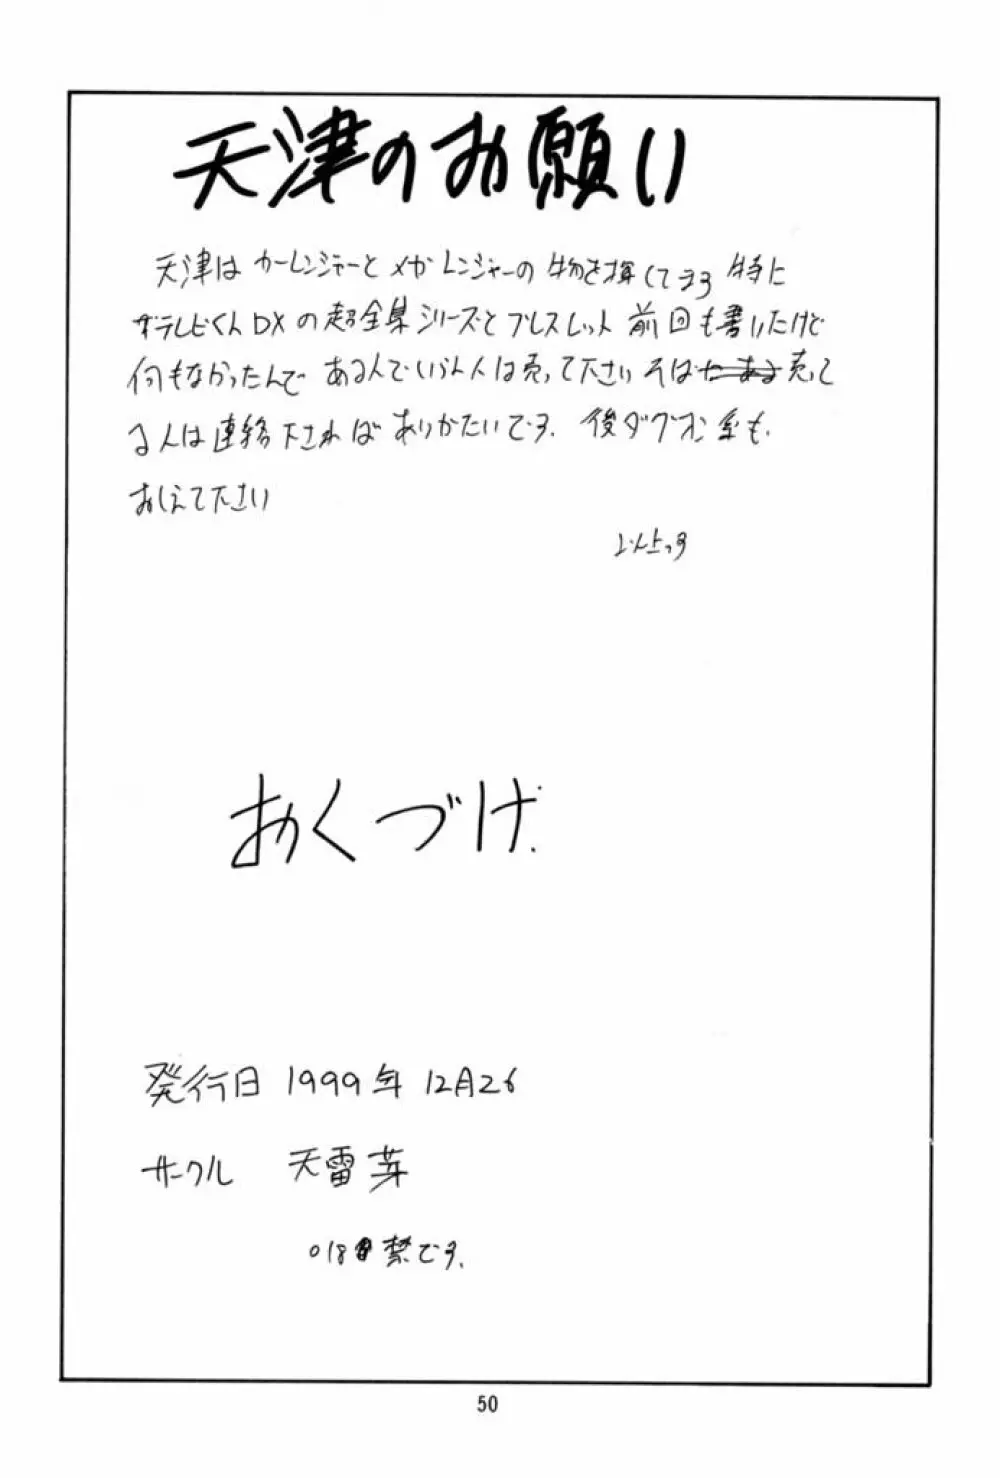 天津のお願い
天津はカーレンジャーとメガレンジャーの物を探してます 特に
ザテレビくんDXの超全集シリーズとブレスレット 前回も書いたけど
何もなかったんで ある人でいらん人は売って下さい そば 売って
る人は連絡下さればありがたいです. 後ダグオン系も.
おしえて下さい
以上っす
おくづけ.
発行日 1999年 12月26
サークル 天雷芽
○18 禁です.
50